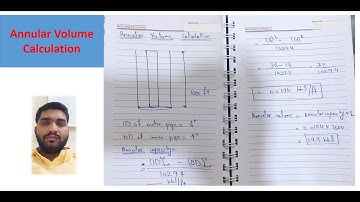 Annular Volume
Calculation
Annular Volume Calculation
1000 ft
ID of outer pipe = 6"
OD of inner pipe = 4"
Annular capacity =
(ID)² - (OD)²
1029.4
bbl/ft
= (6)² - (4)²
1029.4
= 36-16 = 20
1029.4 1029.4
= 0.0194 bbl/ft
Annular volume = Annular capacity x L
= 0.0194 x 1000
= 19.4 bbl